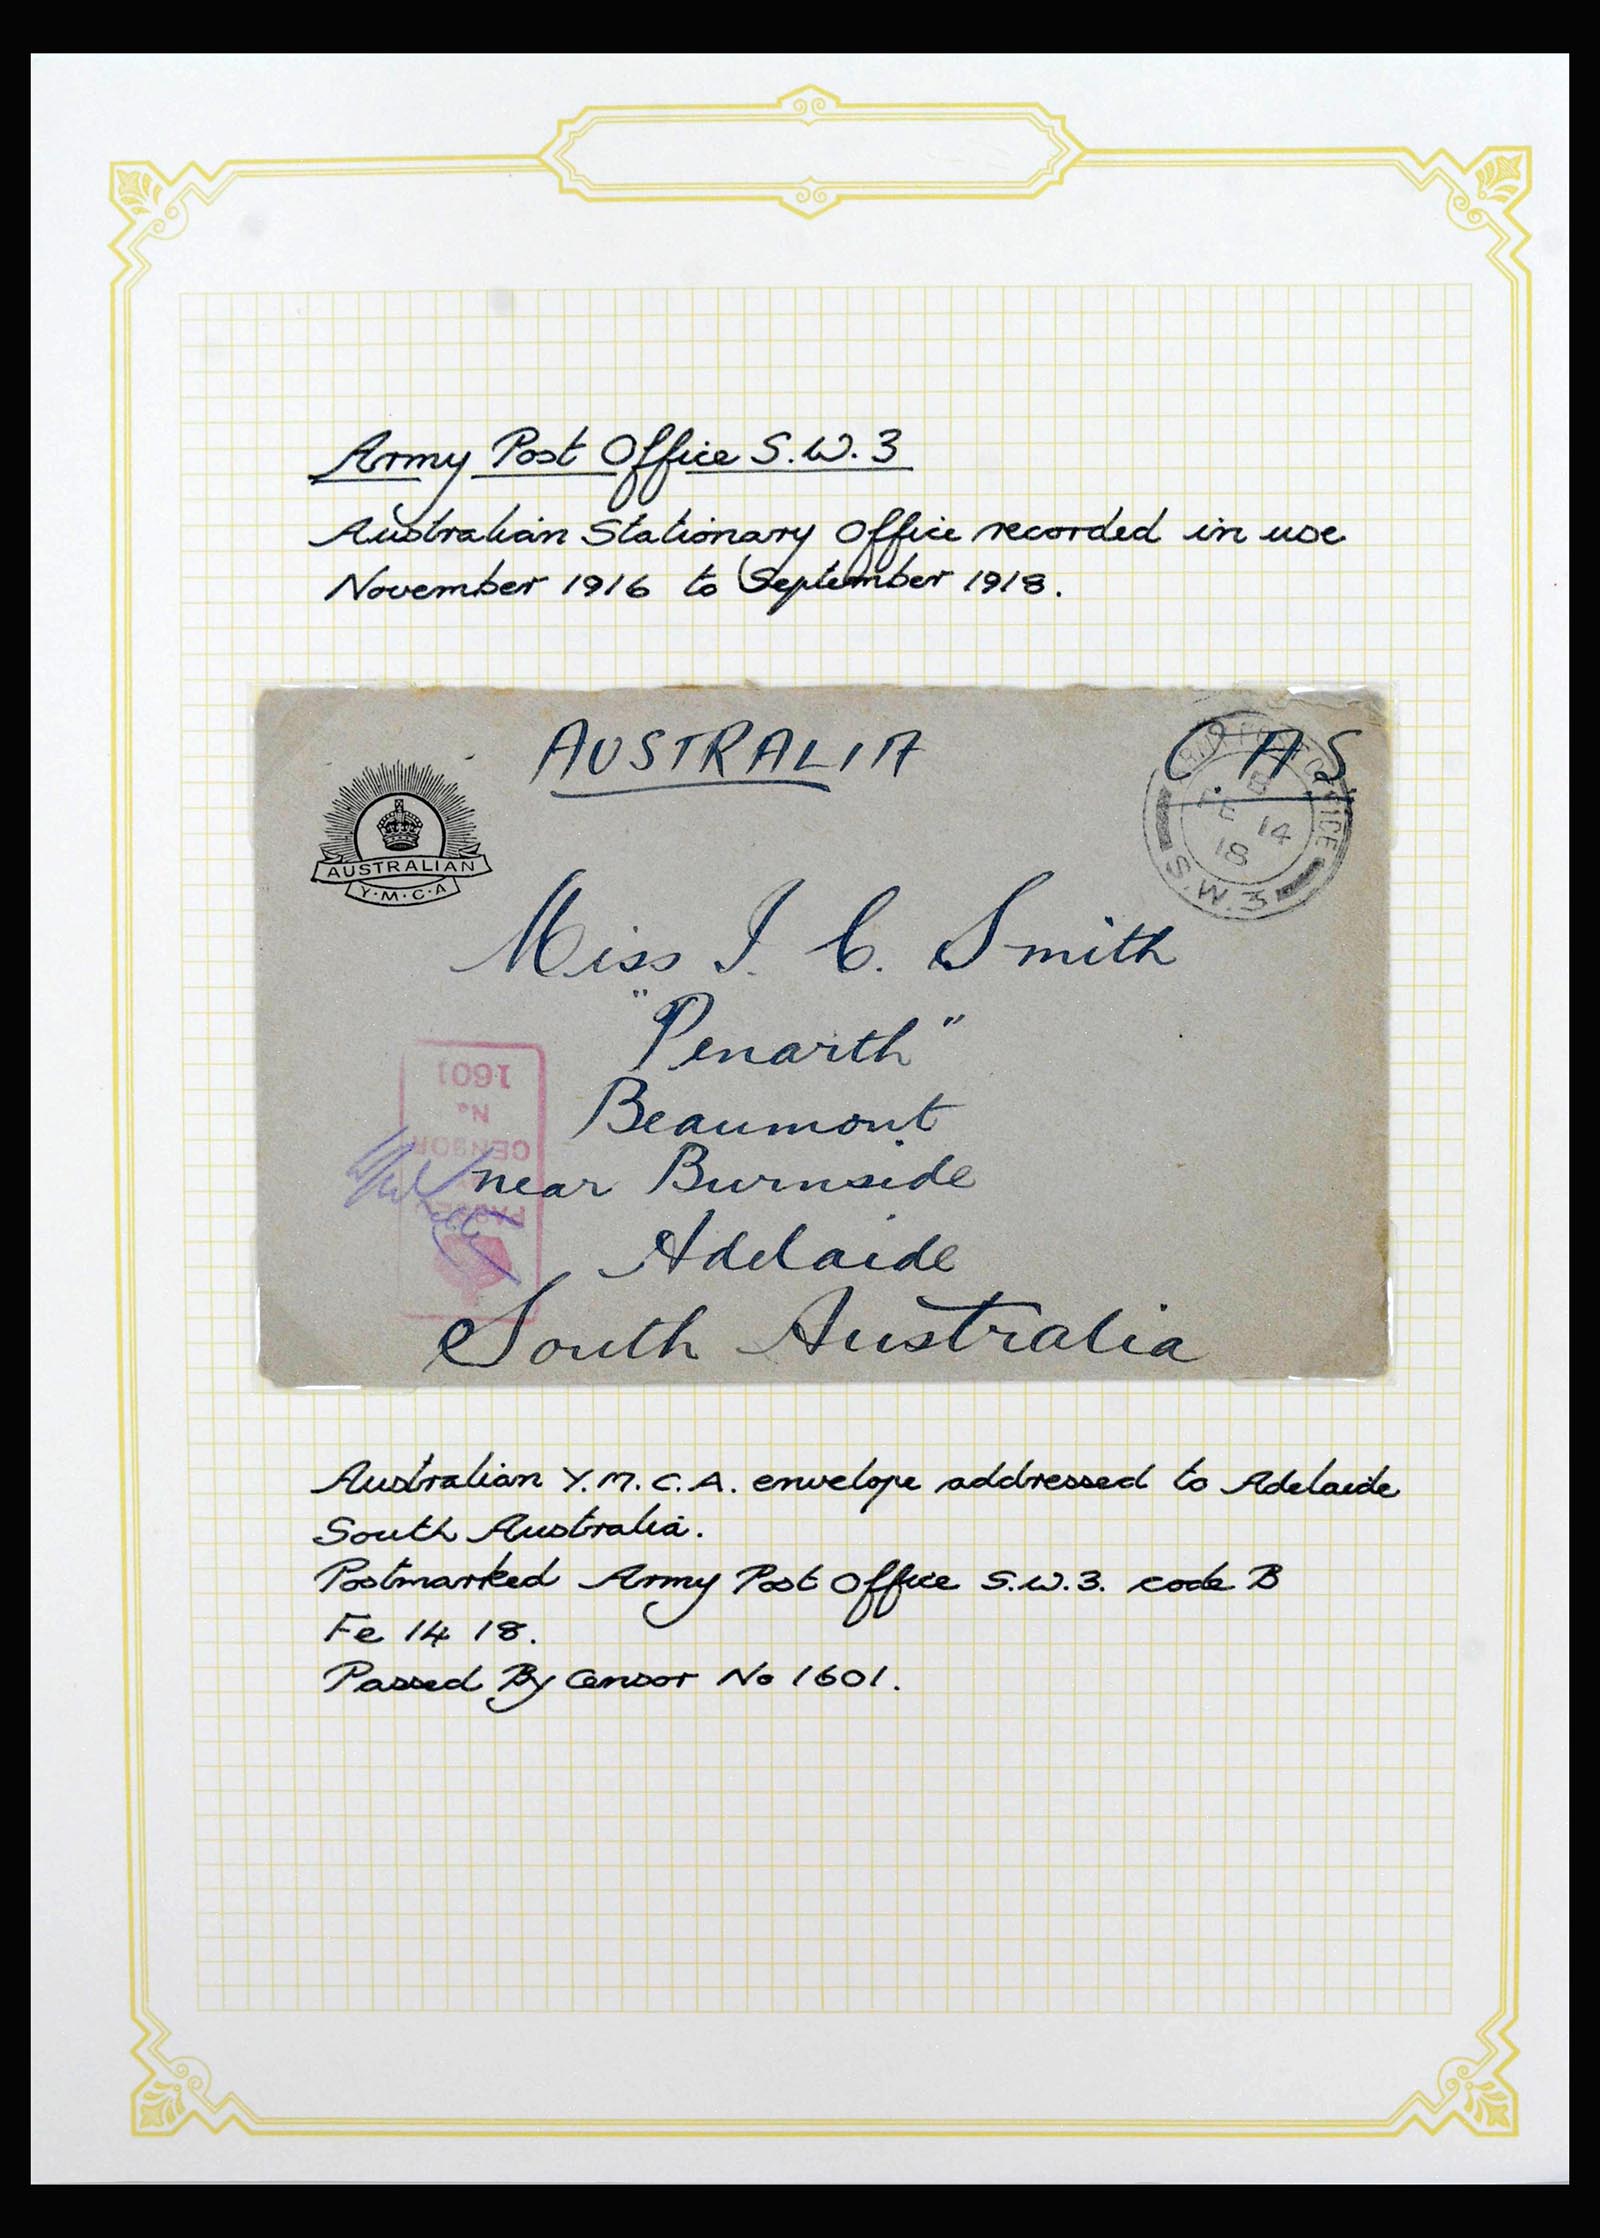 Army Post Office S.W.3
Australian Stationary Office recorded in use
November 1916 to September 1918.
AUSTRALIA
O A S
ARMY POST OFFICE
B
FE 14
18
S.W.3
AUSTRALIAN
Y·M·C·A
Miss I. C. Smith
"Penarth"
Beaumont
near Burnside
Adelaide
South Australia
PASSED
CENSOR
No
1601
Australian Y.M.C.A. envelope addressed to Adelaide
South Australia.
Postmarked Army Post Office S.W.3. code B
Fe 14 18.
Passed By Censor No 1601.